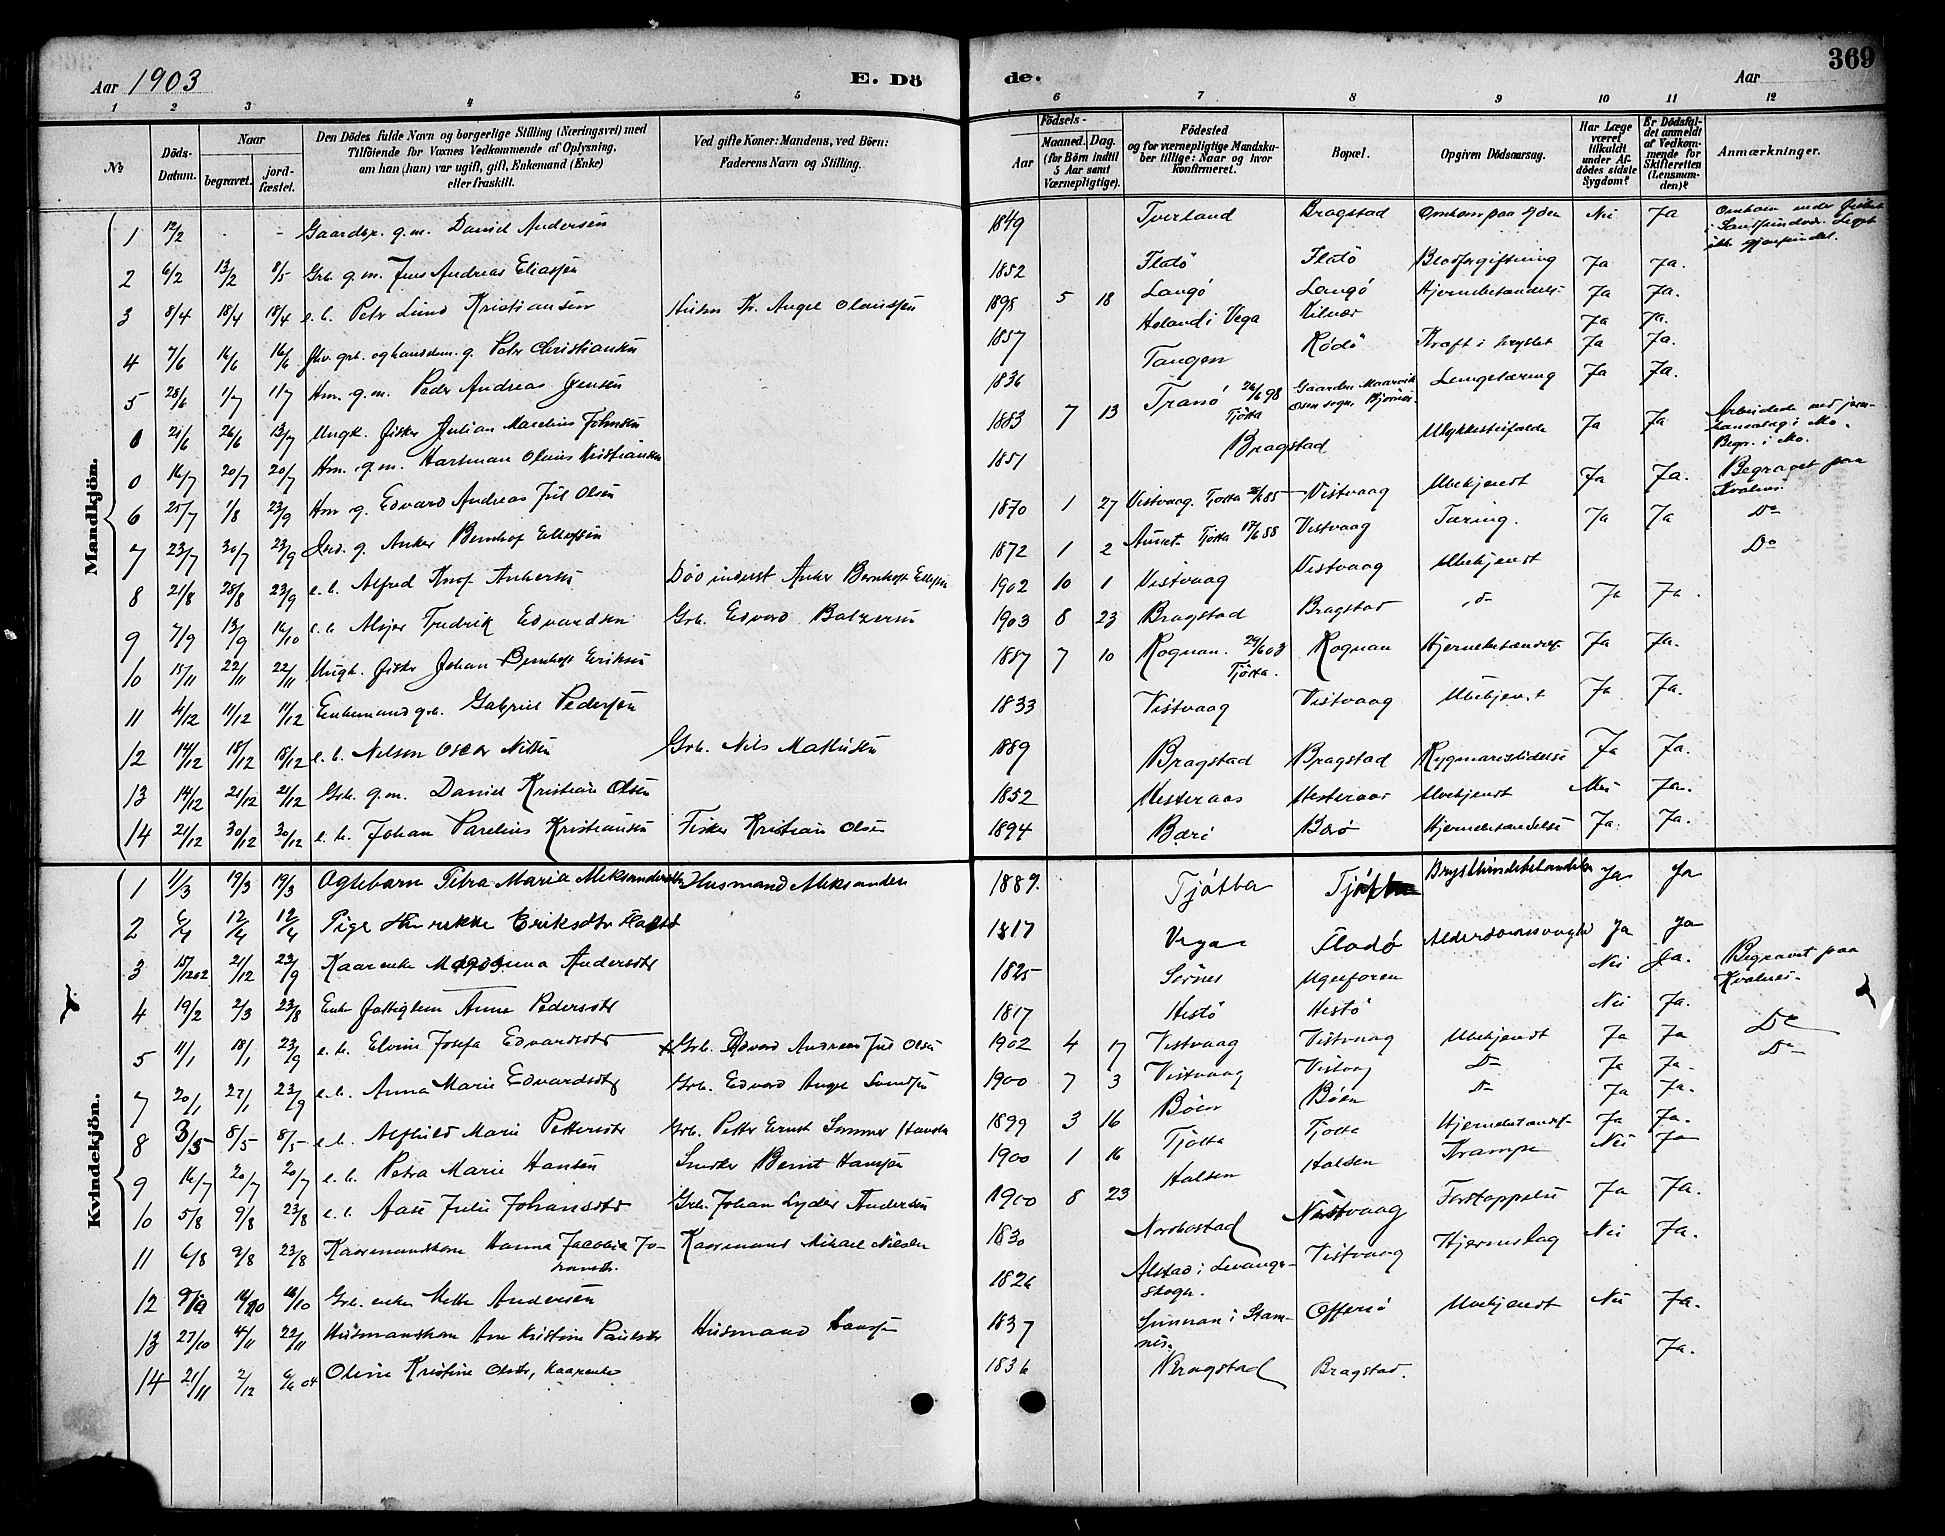 369
Aar 1903 E. Dö de. Aar
1 2 3 4 5 6 7 8 9 10 11 12
No
Döds-Datum.
Naar begravet. jord-fæstet.
Den Dödes fulde Navn og borgerlige Stilling (Næringsvei) med
Tilföiende for Voxnes Vedkommende af Oplysning,
om han (hun) var ugift, gift, Enkemand (Enke)
eller fraskilt.
Ved gifte Koner: Mandens, ved Börn:
Faderens Navn og Stilling.
Födsels-
Aar Maaned. Dag.
(for Börn indtil 5 Aar samt Værnepligtige).
Födested
og for værnepligtige Mandska-
ber tillige: Naar og hvor
konfirmeret.
Bopæl.
Opgiven Dödsaarsag.
Har Læge været tilkaldt under Afdödes sidste Sygdom?
Er Dödsfaldet anmeldt af Vedkommende for Skifteretten (Lensmanden)?
Anmærkninger.
Mandkjön.
1 12/2 - - Gaardbr. g.m. Daniel Andersen 1849 Tverland Bragstad Omkom paa Sjöen Nei Ja
2 6/2 13/2 8/5 Grb. g.m. Jens Andreas Eliassen 1852 Fladö Fladö Blodforgiftning Ja Ja.
3 8/4 18/4 18/4 e.b. Petr Lund Kristiansen 1898 5 18 Langö Langö Hjernebetændelse Ja Ja.
4 7/6 16/6 16/6 g. Petr Christiansen 1857 Holand i Vega Vilvær Ja Ja.
5 28/6 1/7 1/7 Hm. g.m. Peder Andreas Jensen 1836 Tangen Rödö Kraft i brystet Ja Ja.
0 21/6 26/6 13/7 Ungk. fisker Julian Marelius Johnsen 1883 7 13 Tranö 26/6 98 Tjötta Lungetæring Ja Ja.
0 16/7 20/7 20/7 Hm. g.m. Hartman Olaus Kristiansen 1851 Bragstad Ulykkestilfælde Ja Ja
Begr. i Mo.
6 25/7 1/8 23/9 Hm g. Edvard Andreas Jul Olsen 1870 1 27 Vistvaag. Tjotta 85 Vistvaag Ubekjendt Ja Ja. Begravet paa Kvalnes
7 23/7 30/7 23/9 Ind. g. Anker Bernhof Ellefsen 1872 1 2 Tjotta 88 Vistvaag Tæring. Ja Ja Do
8 21/8 28/8 23/9 e.b. Alfred Knof Ankersen Död inderst Anker Bernhoft Ellefsen 1902 10 1 Vistvaag Vistvaag Ubekjendt Do
9 7/9 13/9 16/10 e.b. Fredrik Edvardsen Grb. Edvard Balzersen 1903 8 23 Bragstad Bragstad do Ja Ja.
10 15/11 22/11 22/11 Ungk. fisker Johan Bernhoft Eriksen 1887 7 10 Rognan. 03 Tjötta. Rognan Ja Ja.
11 4/12 11/12 11/12 Enkemand grb. Gabriel Pedersen 1833 Vistvaag Vistvaag Ubekjendt Ja Ja.
12 14/12 18/12 18/12 e.b. Nelson Oscar Nilsen Grb. Nils Mathisen 1889 Bragstad Bragstad Rygmarvslidelse Ja Ja.
13 14/12 21/12 21/12 Grb. g.m. Daniel Kristian Olsen 1852 Hesteraas Hesteraas Ubekjendt Nei Ja.
14 21/12 30/12 30/12 e.b. Johan Parelius Kristiansen Fisker Kristian Olsen 1894 Bærö Bærö Hjernebetændelse Ja. Ja.
Kvindekjön.
1 11/3 19/3 19/3 Ægtebarn Petra Maria Aleksandersdtr Husmand Aleksander 1889. Tjøtta Tjøtta Brysthindebetændelse Ja Ja
2 6/4 12/4 12/4 Pige Henrikke Eriksdtr 1817 Vega Fladø Alderdomssvaghed Ja Ja
3 15/12 02 21/12 23/9 Kaarenke Andersdtr 1825 Sörnes Nei Ja. Begravet paa Kvalnes.
4 19/2 2/3 23/8 Enke fattiglem Anne Pedersdtr 1817 Hestö Hestö Nei Ja.
5 11/1 18/1 23/9 e.b. Elvine Josefa Edvardsdtr Grb. Edvard Andreas Jul Olsen 1902 4 17 Vistvaag Vistvaag Ubekjendt Ja Ja Do
7 20/1 27/1 23/9 e.b. Anna Marie Edvardsdtr Grb. Edvard Angel Svendsen 1900 7 3 Vistvaag Vistvaag Do Ja Ja Do
8 3/5 8/5 8/5 e.b. Alfhild Marie Pettersdtr Grb. Petter Ernst Sommer 1899 3 16 Böen Böen Do Ja Ja.
9 16/7 20/7 20/7 e.b. Petra Marie Hansen Snedker Bernt Hansen 1900 1 16 Tjötta Tjotta Ja Ja.
10 5/8 9/8 23/8 e.b. Aase Julie Johansdtr Grb. Johan Lyder Andersen 1900 8 23 Halsen Halsen Krampe Nei Ja
11 6/8 9/8 23/8 Kaarmandskone Hanna Jacobia Jo-
hansdtr. Kaarmand Mikael Nilsen 1830 Nordbostad Vistvaag Forstoppelse Ja Ja.
12 9/10 16/10 16/10 Grb. enke Mette Andersen 1826 Alstad i Levanger
skogn. Vistvaag Hjerneslag Nei Ja.
13 27/10 4/11 22/11 Husmandskone Ane Kristine Paulsdtr Husmand Hansen 1837 Offersö Ubekjendt Nei Ja.
14 21/11 2/12 6/6 04 Oline Kristine Olsdtr, Kaarenke 1836 Bragstad Bragstad. Ja.